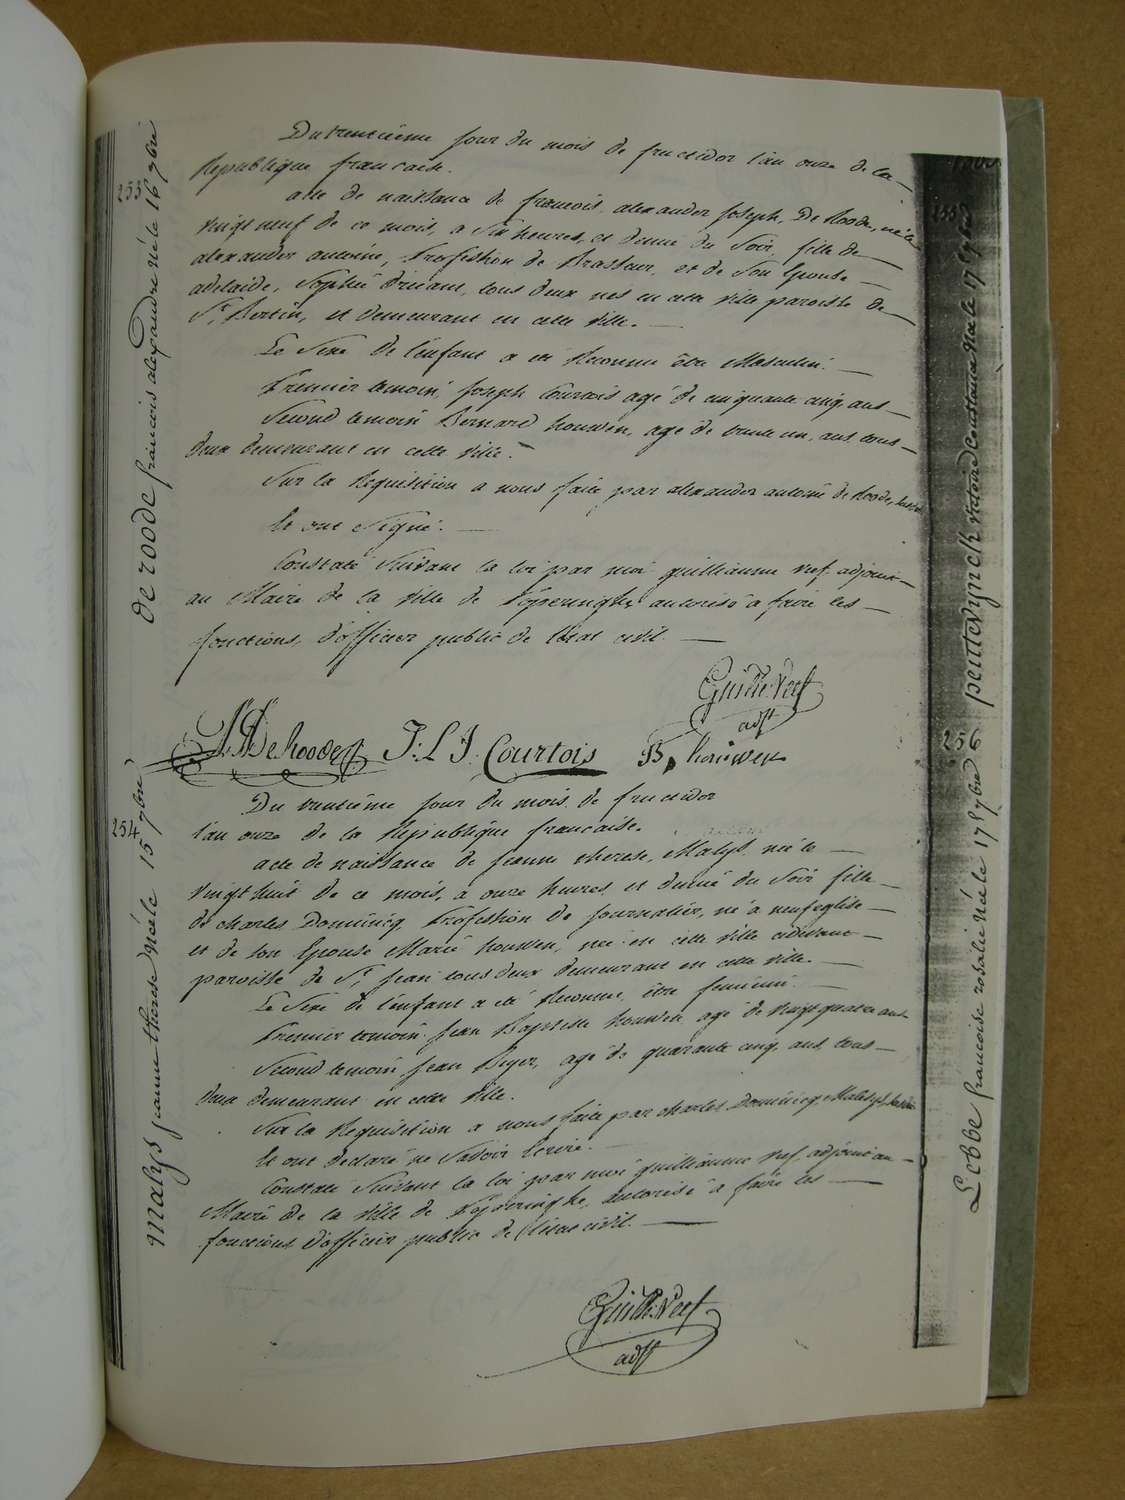 253
de roode francois alexandre né le 16 7bre
Du trentième jour du mois de fructidor l'an onze de la
Republique francaise.
acte de naissance de francois alexander Joseph De Roode, né le
vingt neuf de ce mois, a six heures, et demie du Soir fills de
alexander antoine, Profession de Brasseur, et de Son Epouse
adelaide, Sophie tous deux nés en cette ville paroisse de
St Bertin, et demeurant en cette ville.
Le Sexe de l'enfant a été Reconnu être Masculin.
Premier temoin, Joseph Courtois agé de cinquante cinq, ans
Second temoin Bernard houwen, agé de trente un, ans, tous
deux demeurant en cette ville.
Sur la Requisition a nous faite par alexander antoine de Roode,
et ont Signé.
Constaté Suivant la loi par moi guilliaume Vef adjoint
au Maire de la ville de Poperinghe, autorisé à faire les
fonctions, d'officier public de l'etat civil.
Guille. Veef
adjt
A A De Roode J: L J. Courtois B, houwen
254
Malys jeanne thérèse née le 15 7bre
Du trentième jour du mois de fructidor
l'an onze de la Republique francaise.
acte de naissance de Jeanne therese, Malys, née le
vingt huit de ce mois, à onze heures et demie du Soir fille
de charles Dominicq, Profession de Journalier, né a neufeglise
et de son Epouse Marie houwen, née en cette ville cidevant
paroisse de St Jean tous deux demeurant en cette ville.
Le Sexe de l'enfant a été Reconnu, être feminin.
Premier temoin Jean Baptiste houwen agé de vingt quatre ans
Second temoin Jean Beyer, agé de quarante cinq, ans, tous
deux demeurant en cette ville.
Sur la Requisition a nous faite par charles Dominicq Malys,
et ont declaré ne Savoir Ecrire.
Constaté Suivant la loi par moi guilliaume Vef. adjoint au
Maire de la ville de Poperinghe, autorisé à faire les
fonctions d'officier public de l'etat civil.
Guille. Veef
adjt
255
penteVynck Constance née le 17 7bre
256
Lebbe francoise rosalie née le 17 7bre